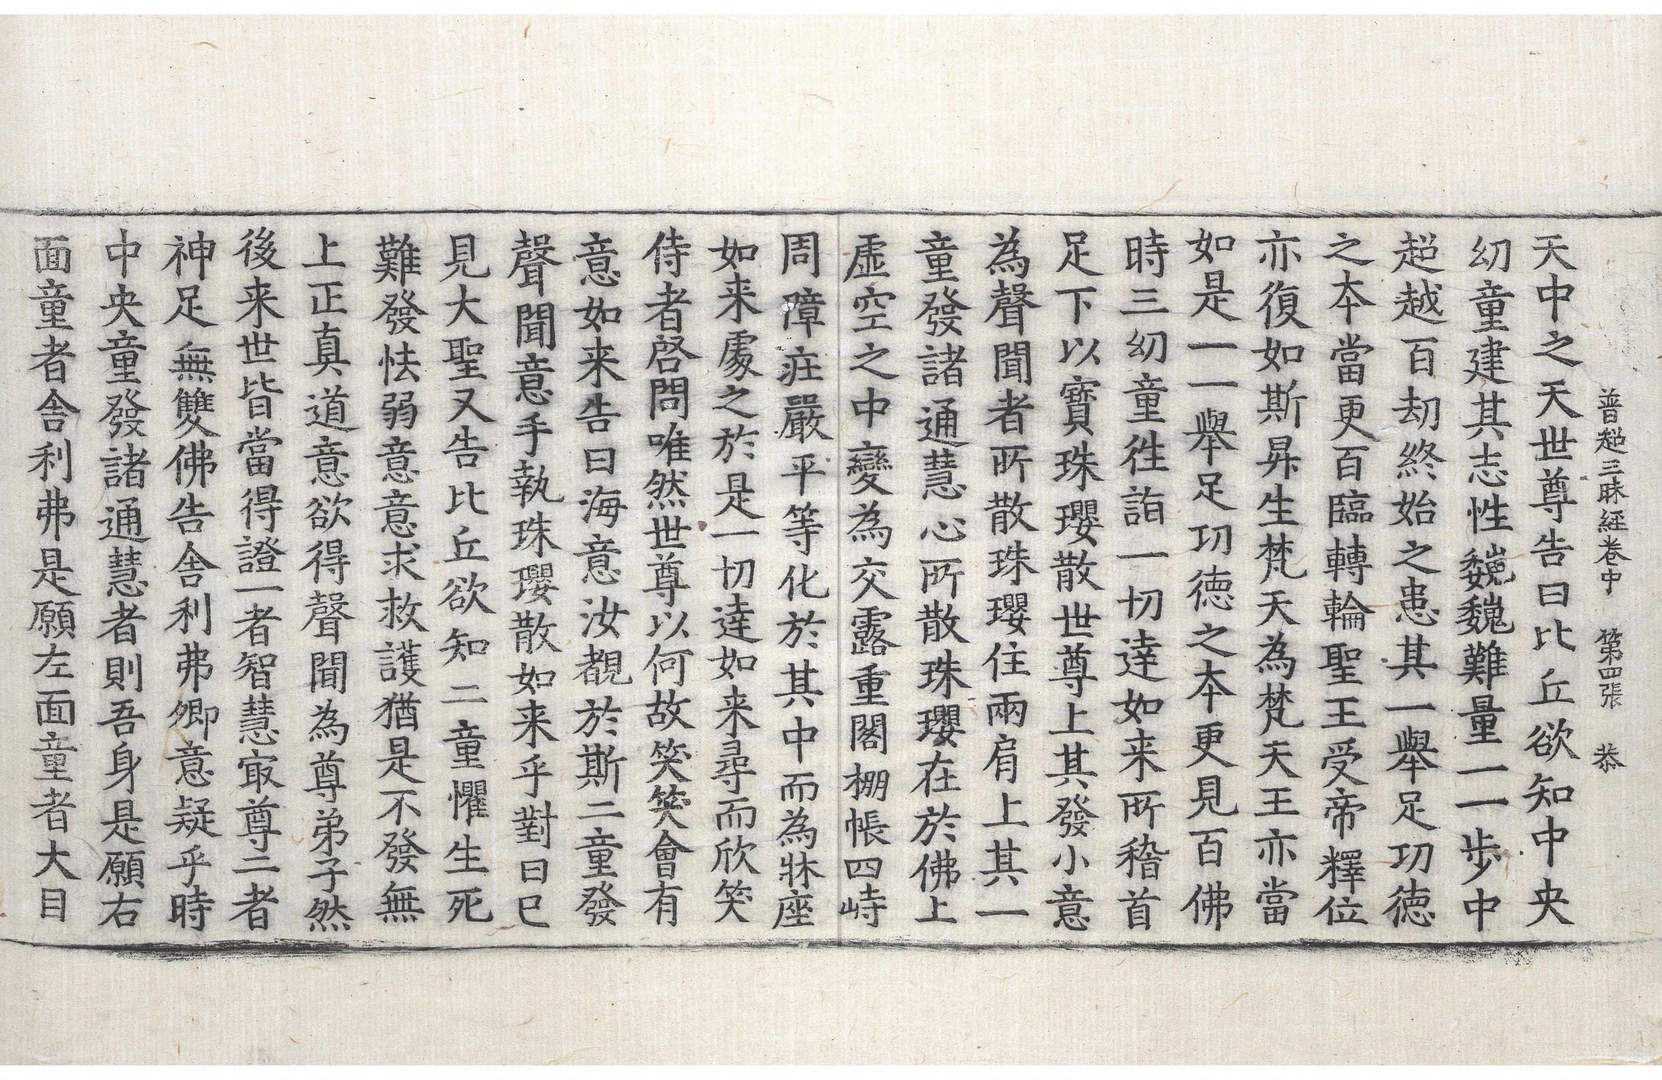 普超三昧經卷中　第四張　恭
天中之天世尊告曰比丘欲知中央
幼童建其志性巍巍難量一一步中
超越百劫終始之患其一舉足功德
之本當更百臨轉輪聖王受帝釋位
亦復如斯昇生梵天為梵天王亦當
如是一一舉足功德之本更見百佛
時三幼童往詣一切達如来所稽首
足下以寶珠瓔散世尊上其發小意
為聲聞者所散珠瓔住兩肩上其一
童發諸通慧心所散珠瓔在於佛上
虛空之中變為交露重閣棚帳四峙
周障莊嚴平等化於其中而為牀座
如来處之於是一切達如来尋而欣笑
侍者啓問唯然世尊以何故笑笑會有
意如来告曰海意汝覩於斯二童發
聲聞意手執珠瓔散如来乎對曰已
見大聖又告比丘欲知二童懼生死
難發怯弱意意求救護猶是不發無
上正真道意欲得聲聞為尊弟子然
後来世皆當得證一者智慧㝡尊二者
神足無雙佛告舍利弗卿意疑乎時
中央童發諸通慧者則吾身是願右
面童者舍利弗是願左面童者大目